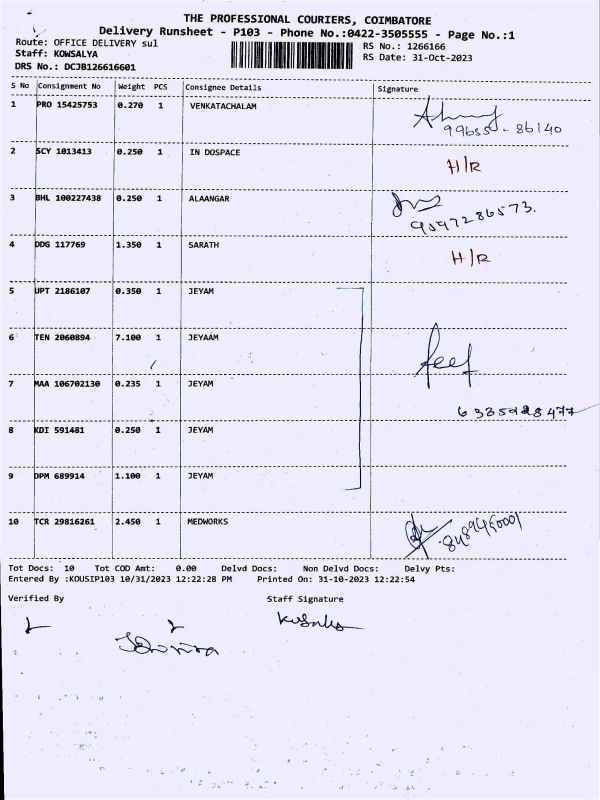 THE PROFESSIONAL COURIERS, COIMBATORE
Delivery Runsheet - P103 - Phone No.:0422-3505555 - Page No.:1
Route: OFFICE DELIVERY sul
RS No.: 1266166
Staff: KOWSALYA
RS Date: 31-Oct-2023
DRS No.: DCJB126616601
S No Consignment No Weight PCS Consignee Details Signature
1 PRO 15425753 0.270 1 VENKATACHALAM
99655-86140
2 SCY 1013413 0.250 1 IN DOSPACE H/R
3 BHL 100227438 0.250 1 ALAANGAR
9597286573.
4 DDG 117769 1.350 1 SARATH H/R
5 UPT 2186107 0.350 1 JEYAM
6 TEN 2060894 7.100 1 JEYAAM
7 MAA 106702130 0.235 1 JEYAM
6385928477
8 KDI 591481 0.250 1 JEYAM
9 DPM 689914 1.100 1 JEYAM
10 TCR 29816261 2.450 1 MEDWORKS
Tot Docs: 10 Tot COD Amt: 0.00 Delvd Docs: Non Delvd Docs: Delvy Pts:
Entered By :KOUSIP103 10/31/2023 12:22:28 PM Printed On: 31-10-2023 12:22:54
Verified By Staff Signature